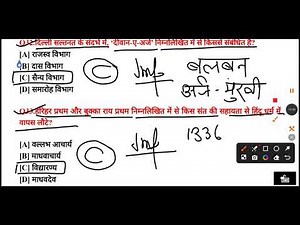 Q32.दिल्ली सल्तनत के संदर्भ में, 'दीवान-ए-अर्ज' निम्नलिखित में से किससे संबंधित है?
[A] राजस्व विभाग
[B] दास विभाग
[C] सैन्य विभाग
[D] समारोह विभाग
C
Imf
बलबन
अर्ज - मुंरवी
हरिहर प्रथम और बुक्का राय प्रथम निम्नलिखित में से किस संत की सहायता से हिंदू धर्म में
वापस लौटे?
[A] वल्लभ आचार्य
[B] माधवाचार्य
[C] विद्यारण्य
[D] माधवदेव
C
Imf
1336